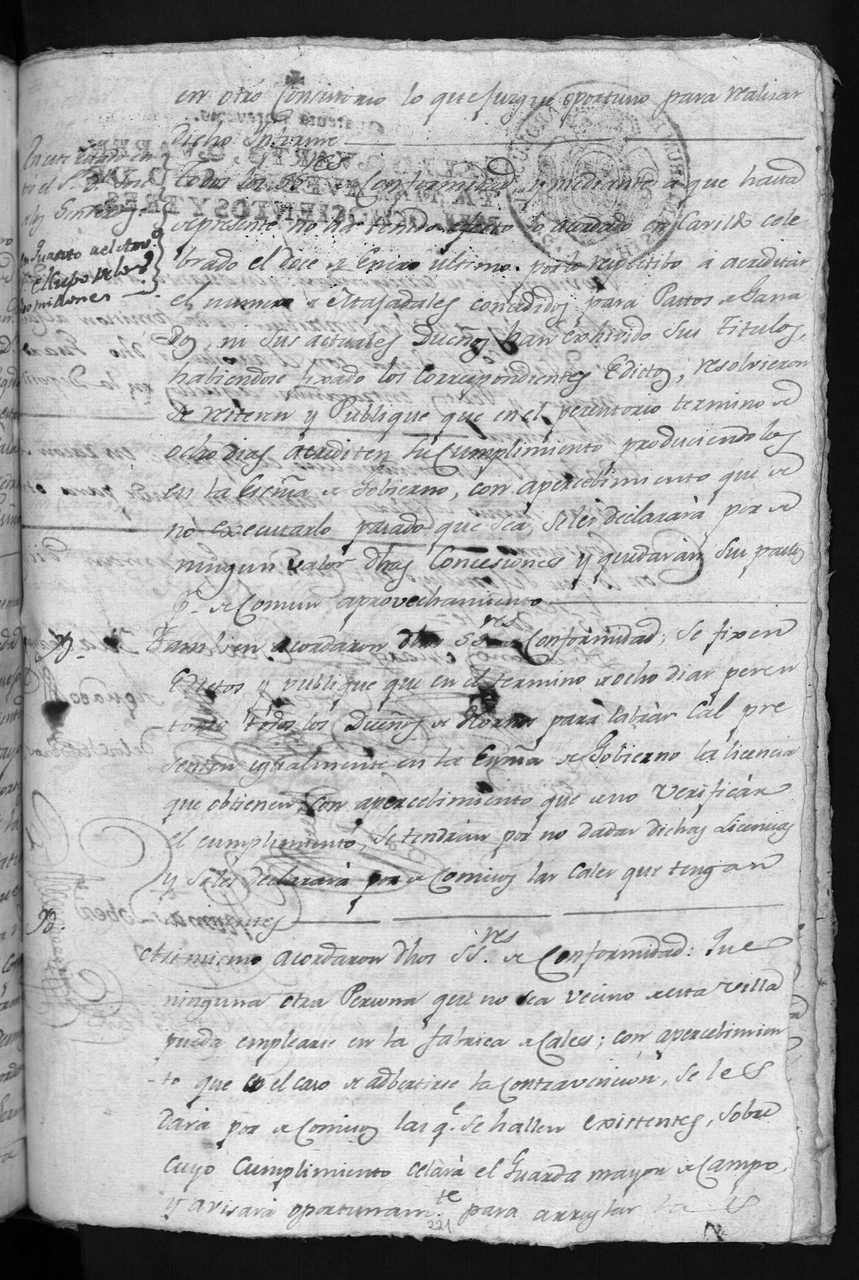 en otro Consistorio lo que juzgue oportuno para realisar
dicho Informe
todos los SSres de Conformidad, y mediante a que hasta
el presente no ha tenido efecto lo acordado en Cavildo cele
brado el doce de Enero ultimo por lo respectibo a acreditar
el numero de Majadales concedidos para Pastos de Gana
dos, ni sus actuales Dueños han exhivido sus Titulos,
habiendose fixado los correspondientes Edictos; resolvieron
se reiteren y Publique que en el perentorio termino de
ocho dias acrediten su cumplimiento produciendolos
en la Escñia de Govierno, con apercebimiento que de
no executarlo pasado que sea, se les declarará por de
ningun valor dhas Concesiones y quedarán sus pastos
pr de Comun aprovechamiento
Tambien acordaron dhos SSres de Conformidad, se fixen
Edictos y publique que en el termino de ocho dias peren
torio todos los Dueños de Hornos para labrar Cal pre
senten igualmente en la Escñia de Govierno la licencia
que obtienen con apercebimiento que de no verificar
el cumplimiento, se tendrán por no dadas dichas Licencias
y se les declarará por de Comisos las Cales que tengan
existentes
Asimismo acordaron dhos SSres de Conformidad: Que
ninguna otra Persona que no sea vecino de esta villa
pueda emplearse en la fabrica de Cales; con apercebimien
to que en el caso de adbertirse la Contravencion, se les
dará por de Comisos las qe se hallen existentes, sobre
cuyo Cumplimiento celará el Guarda mayor de Campo,
y avisará oportunamte para arreglar la
221